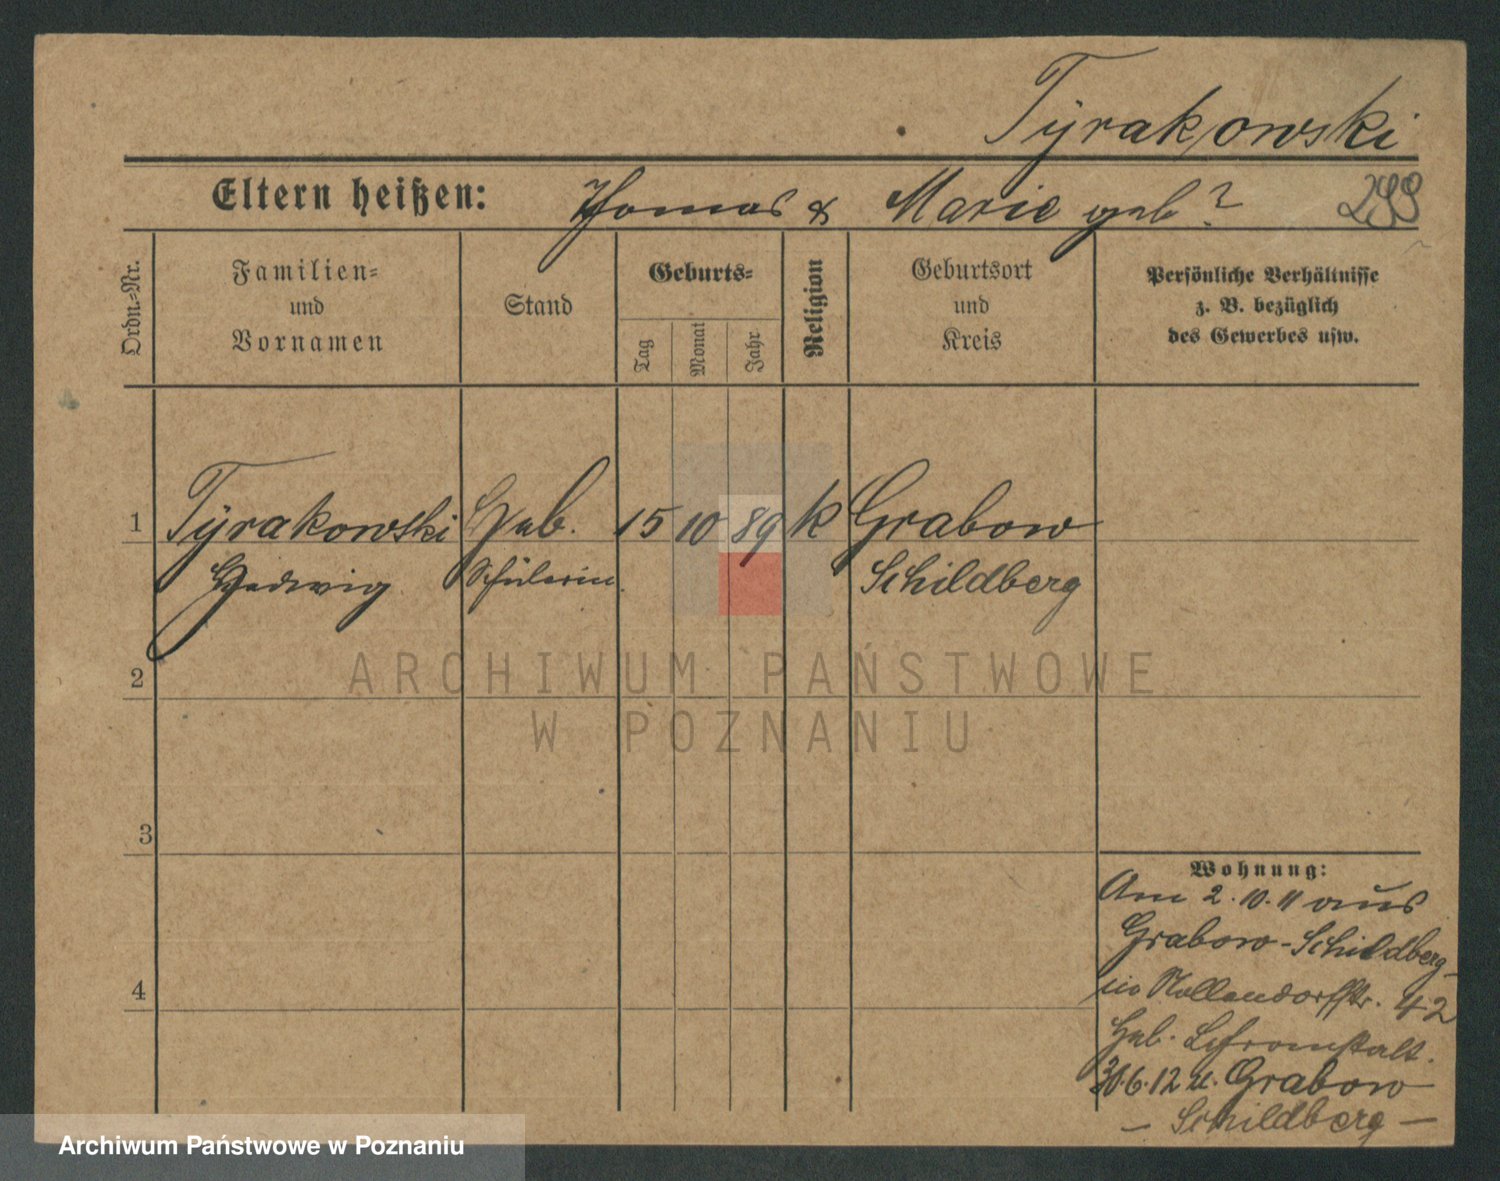 Tyrakowski
Eltern heißen: Thomas & Marie geb?
299
Ordn.-Nr.
Familien-
und
Vornamen
Stand
Geburts-
Tag
Monat
Jahr
Religion
Geburtsort
und
Kreis
Persönliche Verhältnisse
z. B. bezüglich
des Gewerbes usw.
1 Tyrakowski Heb. 15 10 89 k Grabow
Hedwig Schülerin. Schildberg
2
3
4
Wohnung:
Am 2.10.11 aus
Grabow-Schildberg-
in Nollendorffstr. 42
Heb. Lehranstalt.
30.6.12 n. Grabow
- Schildberg -
ARCHIWUM PAŃSTWOWE
W POZNANIU
Archiwum Państwowe w Poznaniu